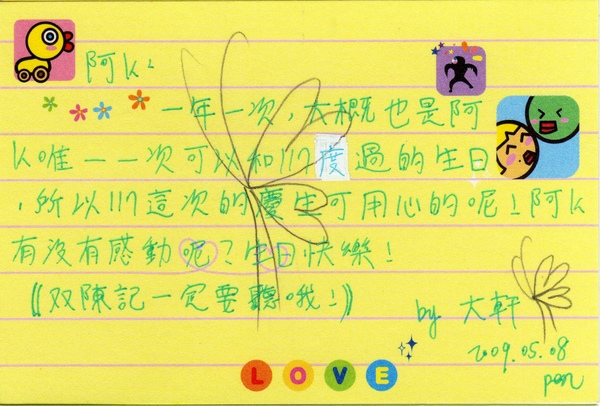 阿K：
一年一次，大概也是阿
K唯一一次可以和117度過的生日
，所以117這次的慶生可用心的呢！阿K
有沒有感動呢？生日快樂！
(双陳記一定要聽哦！)
by 大軒
2009.05.08
pm
LOVE